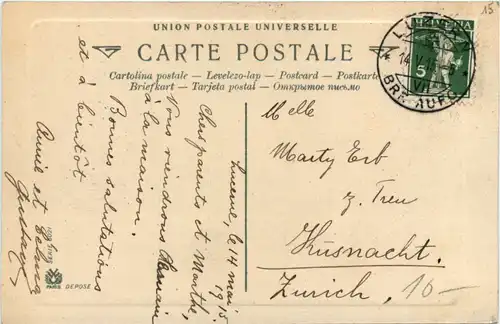 UNION POSTALE UNIVERSELLE
CARTE POSTALE
Cartolina postale — Levelezo-lap — Postcard — Postkarte
Briefkart — Tarjeta postal — Открытое письмо
15
HELVETIA
5
LUZERN
14.V.15
VII
BRF. AUFG.
Lucerne, le 14 mai
1915
Chers parents et Marthe,
Vous viendrons
à la maison.
Bonnes salutations
et à bientôt
Annie et
Gustave
Melle
Marty Erb
z. Treu
Küsnacht.
Zurich,
10 —
PARIS
DEPOSÉ